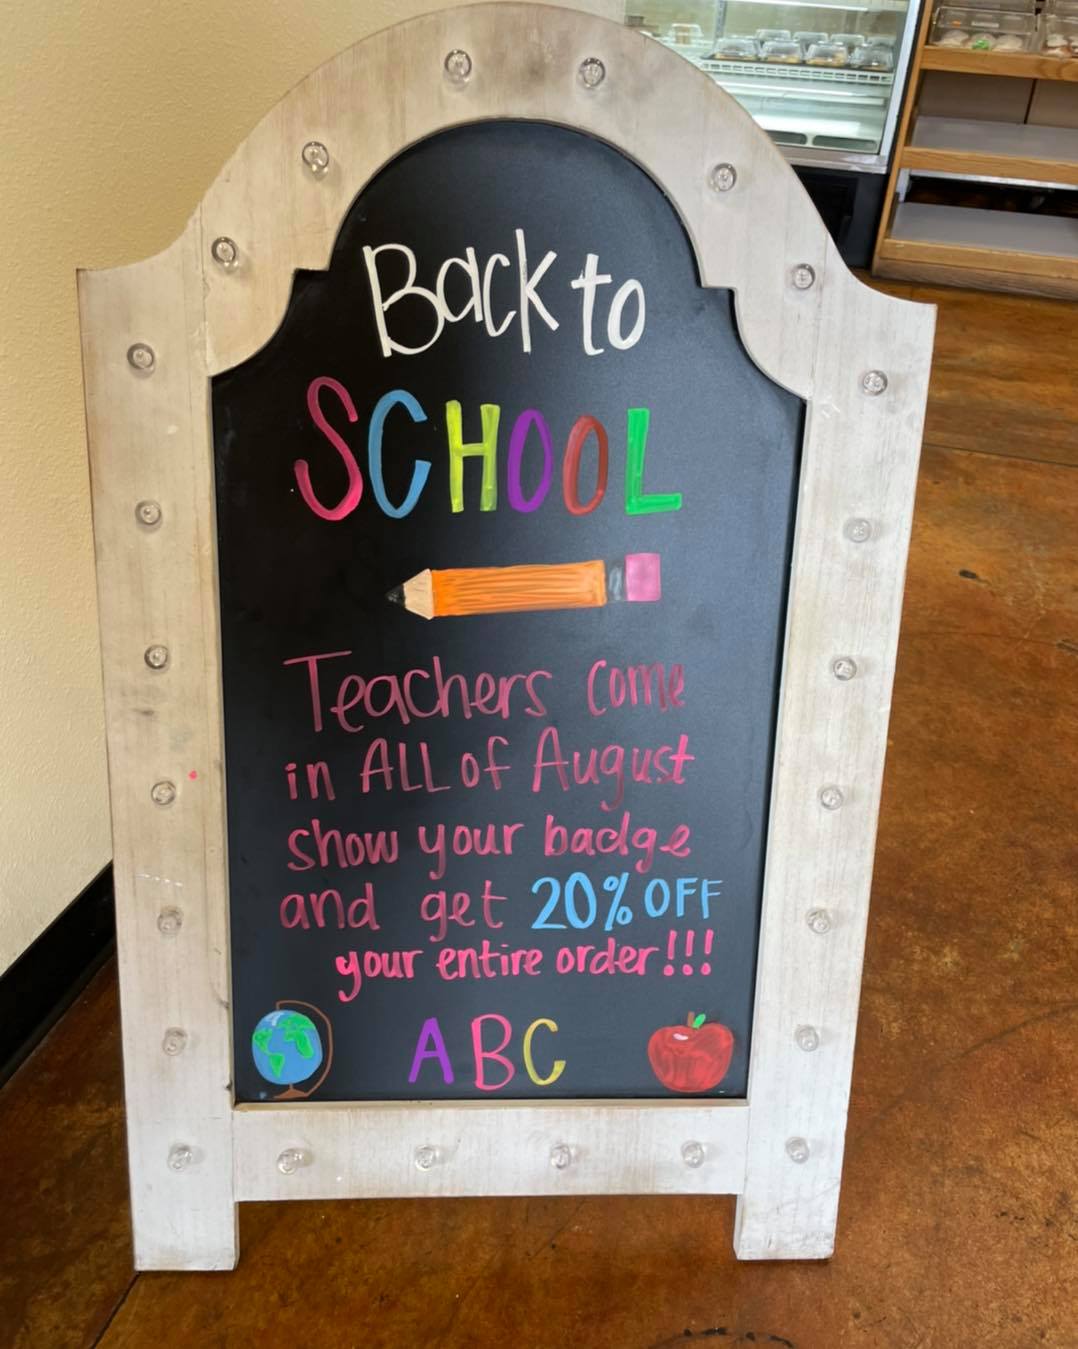 Back to
SCHOOL
Teachers come
in ALL of August
show your badge
and get 20% OFF
your entire order!!!
ABC